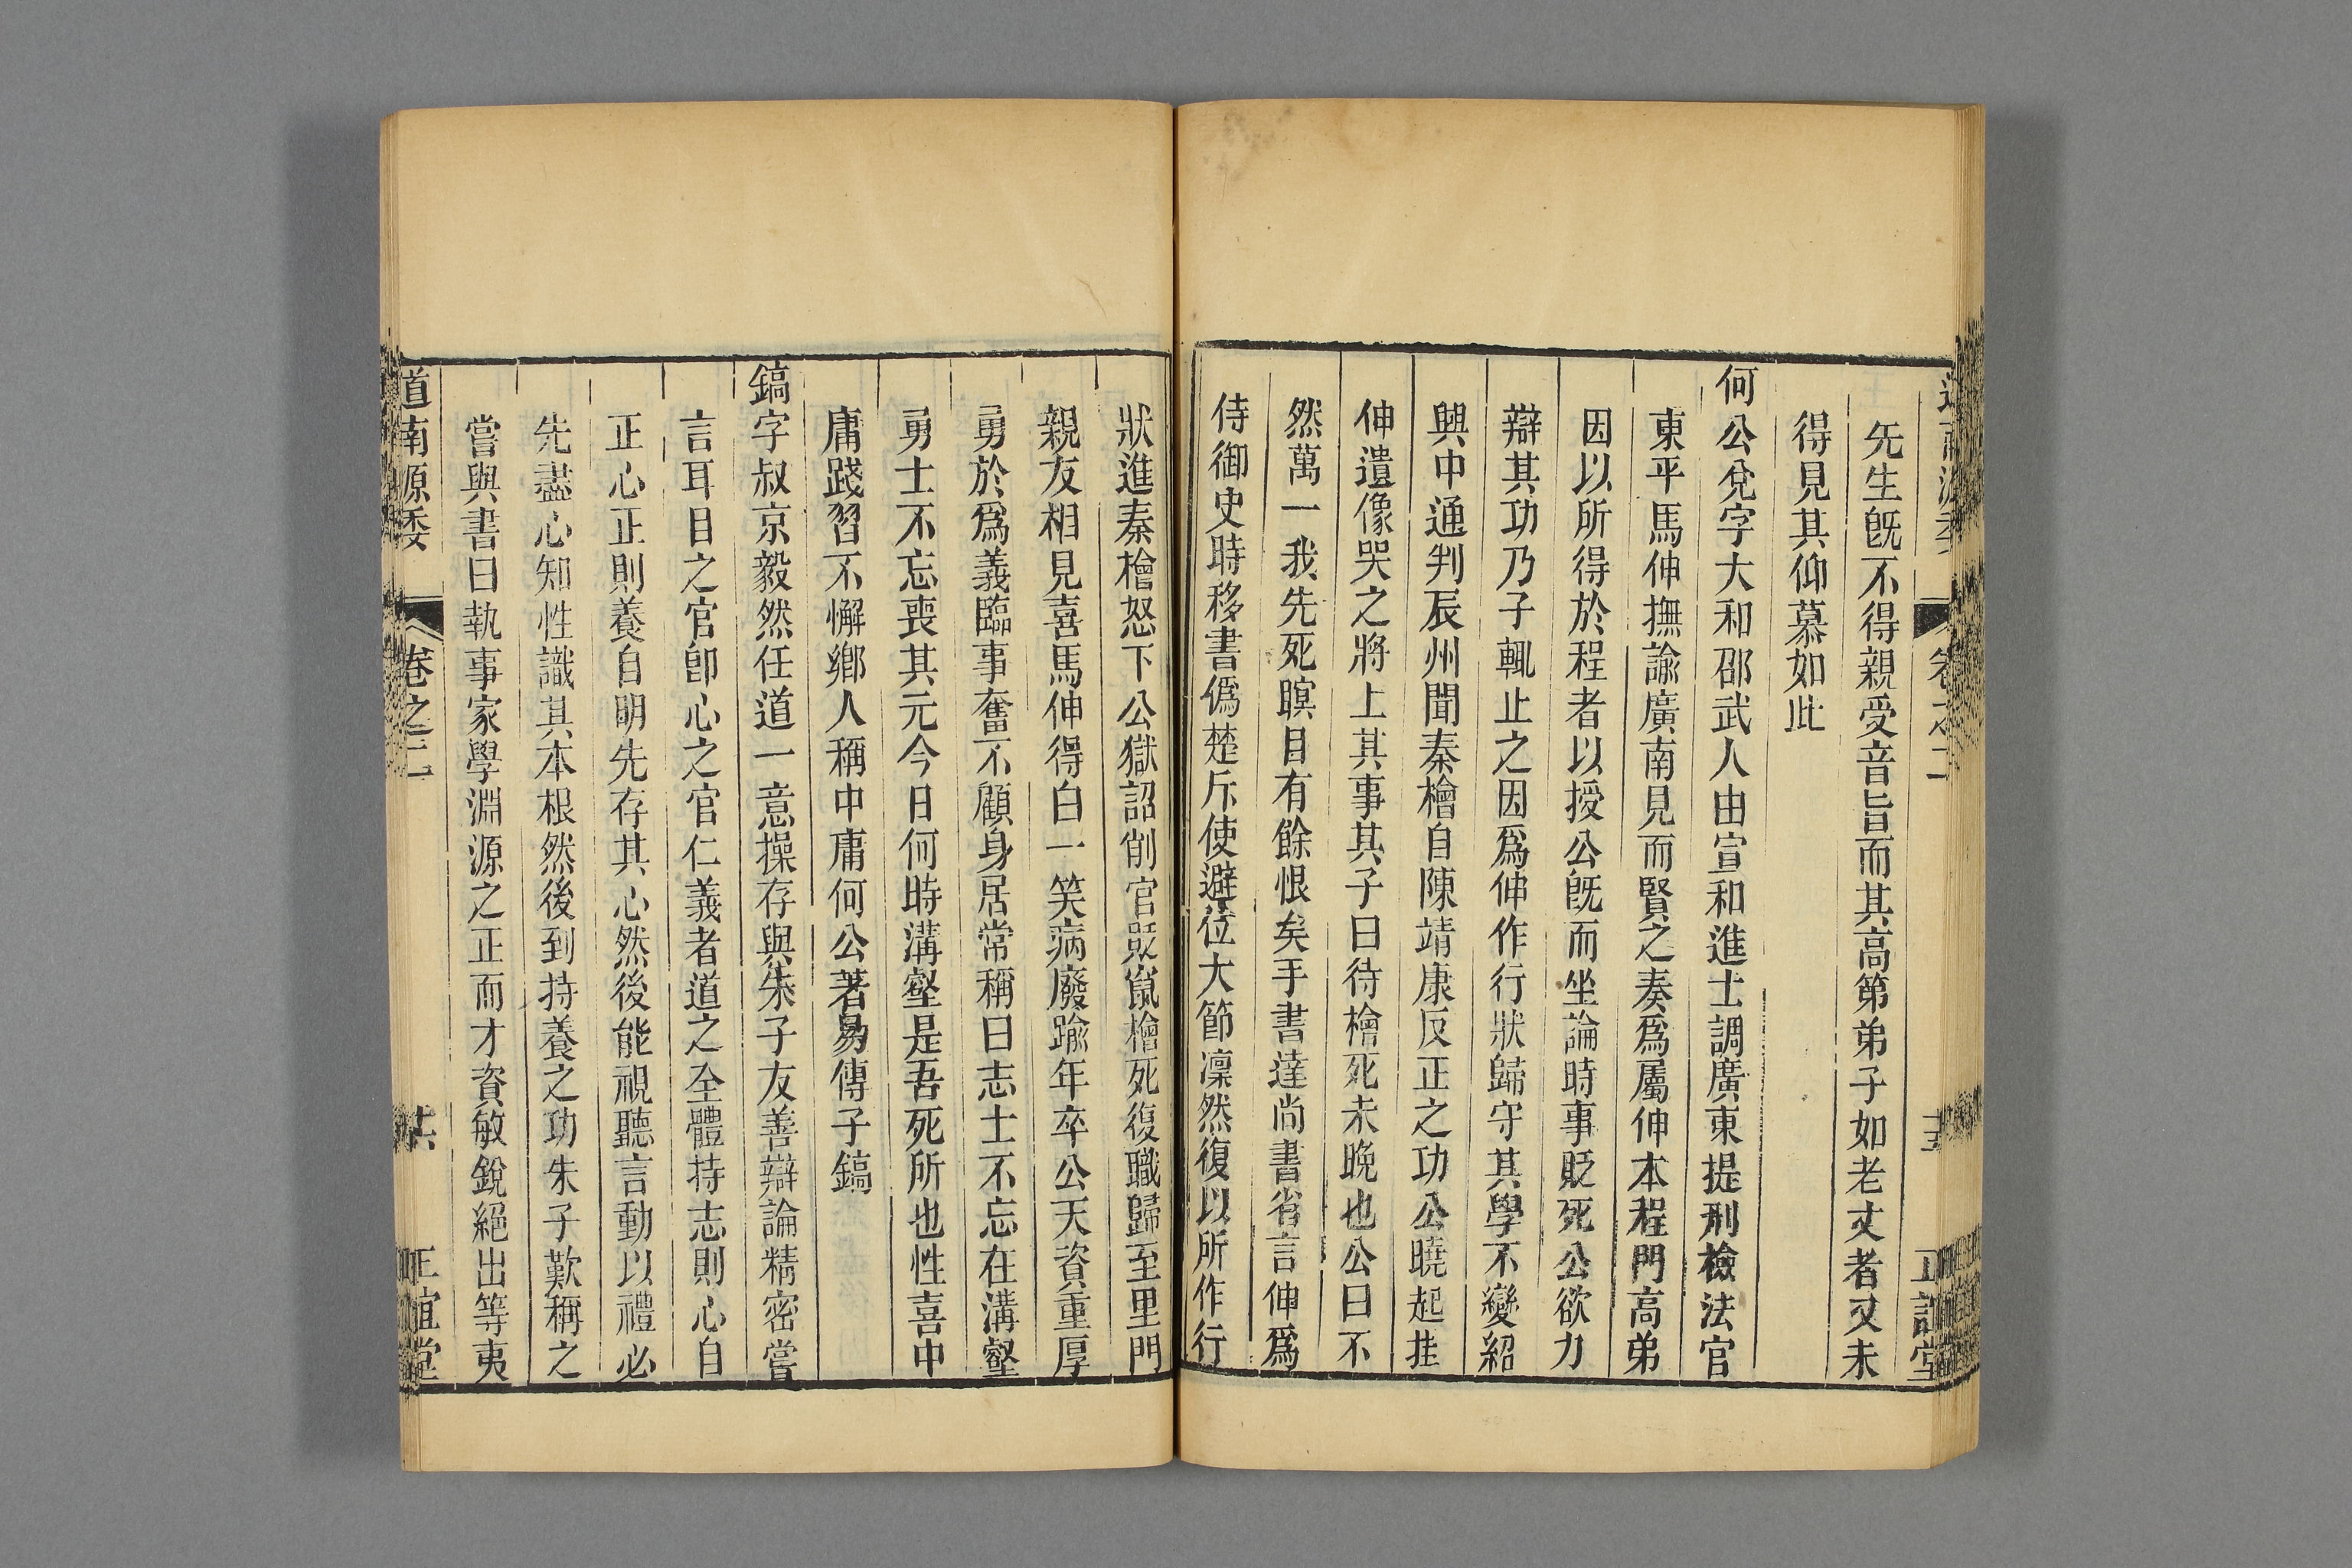 先生旣不得親受音旨而其高第弟子如老丈者又未
得見其仰慕如此
何公兌字大和邵武人由宣和進士調廣東提刑檢法官
東平馬伸撫諭廣南見而賢之奏爲屬伸本程門高弟
因以所得於程者以授公旣而坐論時事貶死公欲力
辯其功乃子輒止之因爲伸作行狀歸守其學不變紹
興中通判辰州聞秦檜自陳靖康反正之功公曉起挂
伸遺像哭之將上其事其子曰待檜死未晚也公曰不
然萬一我先死瞑目有餘恨矣手書達尚書省言伸爲
侍御史時移書僞楚斥使避位大節凜然復以所作行
狀進秦檜怒下公獄詔削官竄檜死復職歸至里門
親友相見喜馬伸得白一笑病廢踰年卒公天資重厚
勇於爲義臨事奮不顧身居常稱曰志士不忘在溝壑
勇士不忘喪其元今日何時溝壑是吾死所也性喜中
庸踐習不懈鄉人稱中庸何公著易傳子鎬
鎬字叔京毅然任道一意操存與朱子友善辯論精密嘗
言耳目之官卽心之官仁義者道之全體持志則心自
正心正則養自明先存其心然後能視聽言動以禮必
先盡心知性識其本根然後到持養之功朱子歎稱之
嘗與書曰執事家學淵源之正而才資敏銳絕出等夷
道南源委
卷之二
共
正誼堂